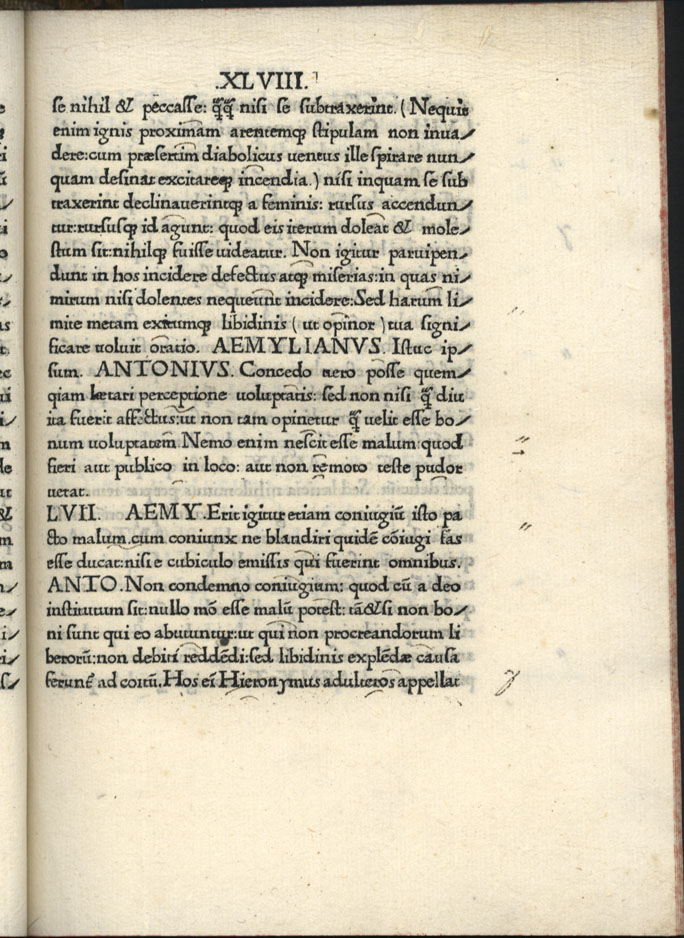 .XLVIII.
se nihil & peccasse: q̃q̃ nisi se subtraxerint. (Nequit
enim ignis proximam arentemqꝫ stipulam non inua⸗
dere:cum præsertim diabolicus uentus ille spirare nun⸗
quam desinat excitareqꝫ incendia.) nisi inquam se sub
traxerint declinauerintqꝫ a feminis: rursus accendun⸗
tur:rursusqꝫ id agunt: quod eis iterum doleat & mole⸗
stum sit:nihilqꝫ fuisse uideatur. Non igitur paruipen⸗
dunt in hos incidere defectus atqꝫ miserias:in quas ni⸗
mirum nisi dolentes nequeunt incidere:Sed harum li⸗
mite metam exitumqꝫ libidinis ( ut opinor ) tua signi⸗
ficare uoluit oratio. AEMYLIANVS. Istuc ip⸗
sum. ANTONIVS. Concedo uero posse quem⸗
qiam lætari perceptione uoluptatis: sed non nisi q̃ diu
ita fuerit affectus:ut non tam opinetur q̃ uelit esse bo⸗
num uoluptatem. Nemo enim nescit esse malum quod
fieri aut publico in loco: aut non remoto teste pudor
uetat.
LVII. AEMY.Erit igitur etiam coniugiū isto pa
cto malum.cum coniunx ne blandiri quidē cōiugi fas
esse ducat:nisi e cubiculo emissis qui fuerint omnibus.
ANTO.Non condemno coniugium: quod cū a deo
institutum sit:nullo mō esse malū potest: tā&si non bo⸗
ni sunt qui eo abutuntur:ut qui non procreandorum li
berorū:non debiti reddēdi:sed libidinis explēdæ causa
ferunt᷑ ad coitū.Hos eī Hieronymus adulteros appellat